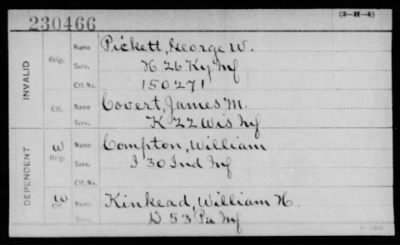 230466
(3-H-4)
INVALID
Orig.
Name
Pickett, George W.
Serv.
H 26 Ky Inf
Ctf. No.
150271
Ctf.
Name
Covert, James M.
Serv.
K 22 Wis Inf
DEPENDENT
W
Orig.
Name
Compton, William
Serv.
I 30 Ind Inf
Ctf. No.
W
Name
Kinkead, William H.
D 53 Pa Inf